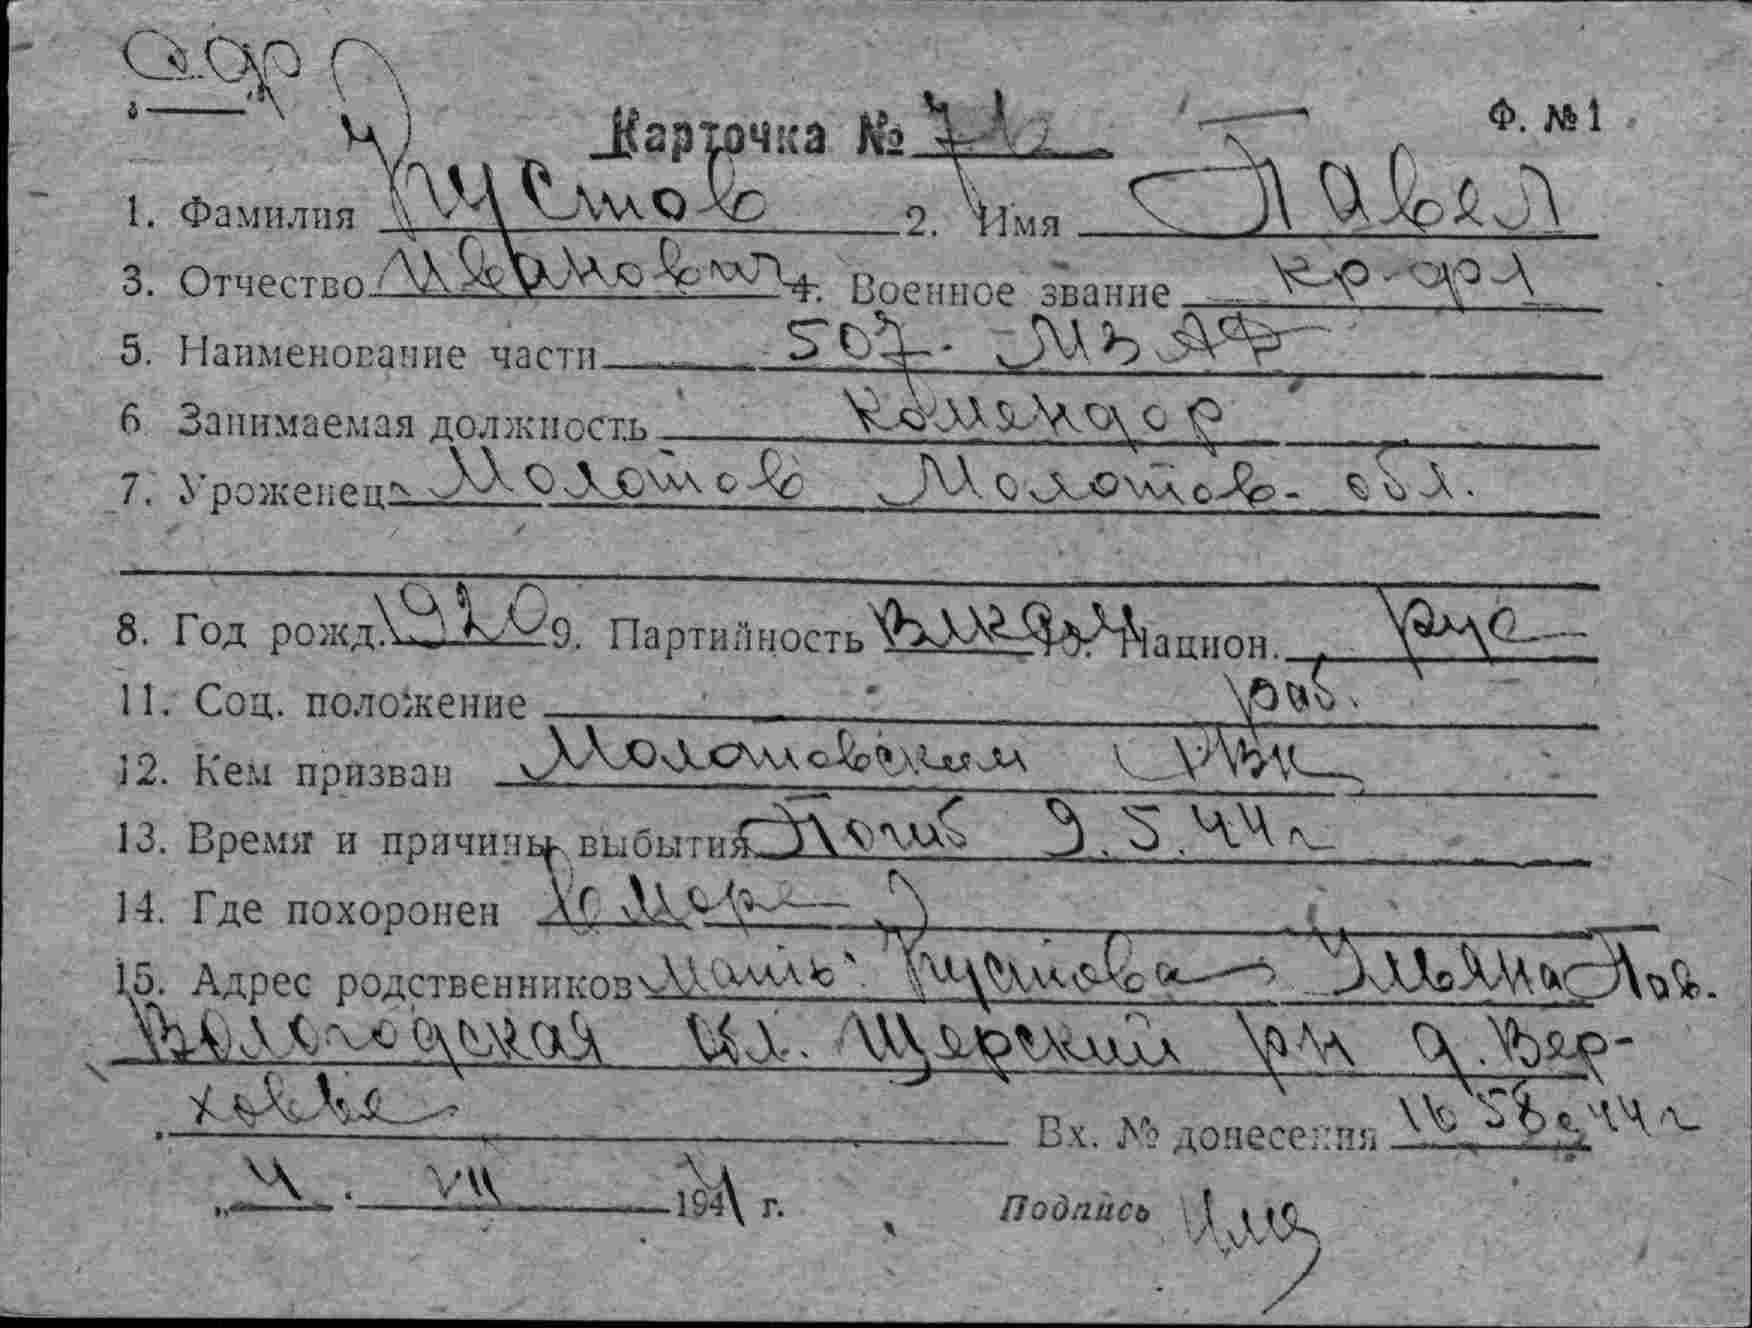 Ф. №1
Карточка №
1. Фамилия Кустов 2. Имя Павел
3. Отчество Иванович 4. Военное звание кр-ф
5. Наименование части 507.
6 Занимаемая должность командор
7. Уроженец Молотов Молотов- обл.
8. Год рожд. 1920 9. Партийность Национ. рус
11. Соц. положение раб.
12. Кем призван Молотовским РВК
13. Время и причины выбытия Погиб 9.5.44 г
14. Где похоронен В море
15. Адрес родственников Мать Кустова
Вологодская обл. рн д. Вер-
ховье
Вх. № донесения
„ 4 . VII 1944 г. Подпись